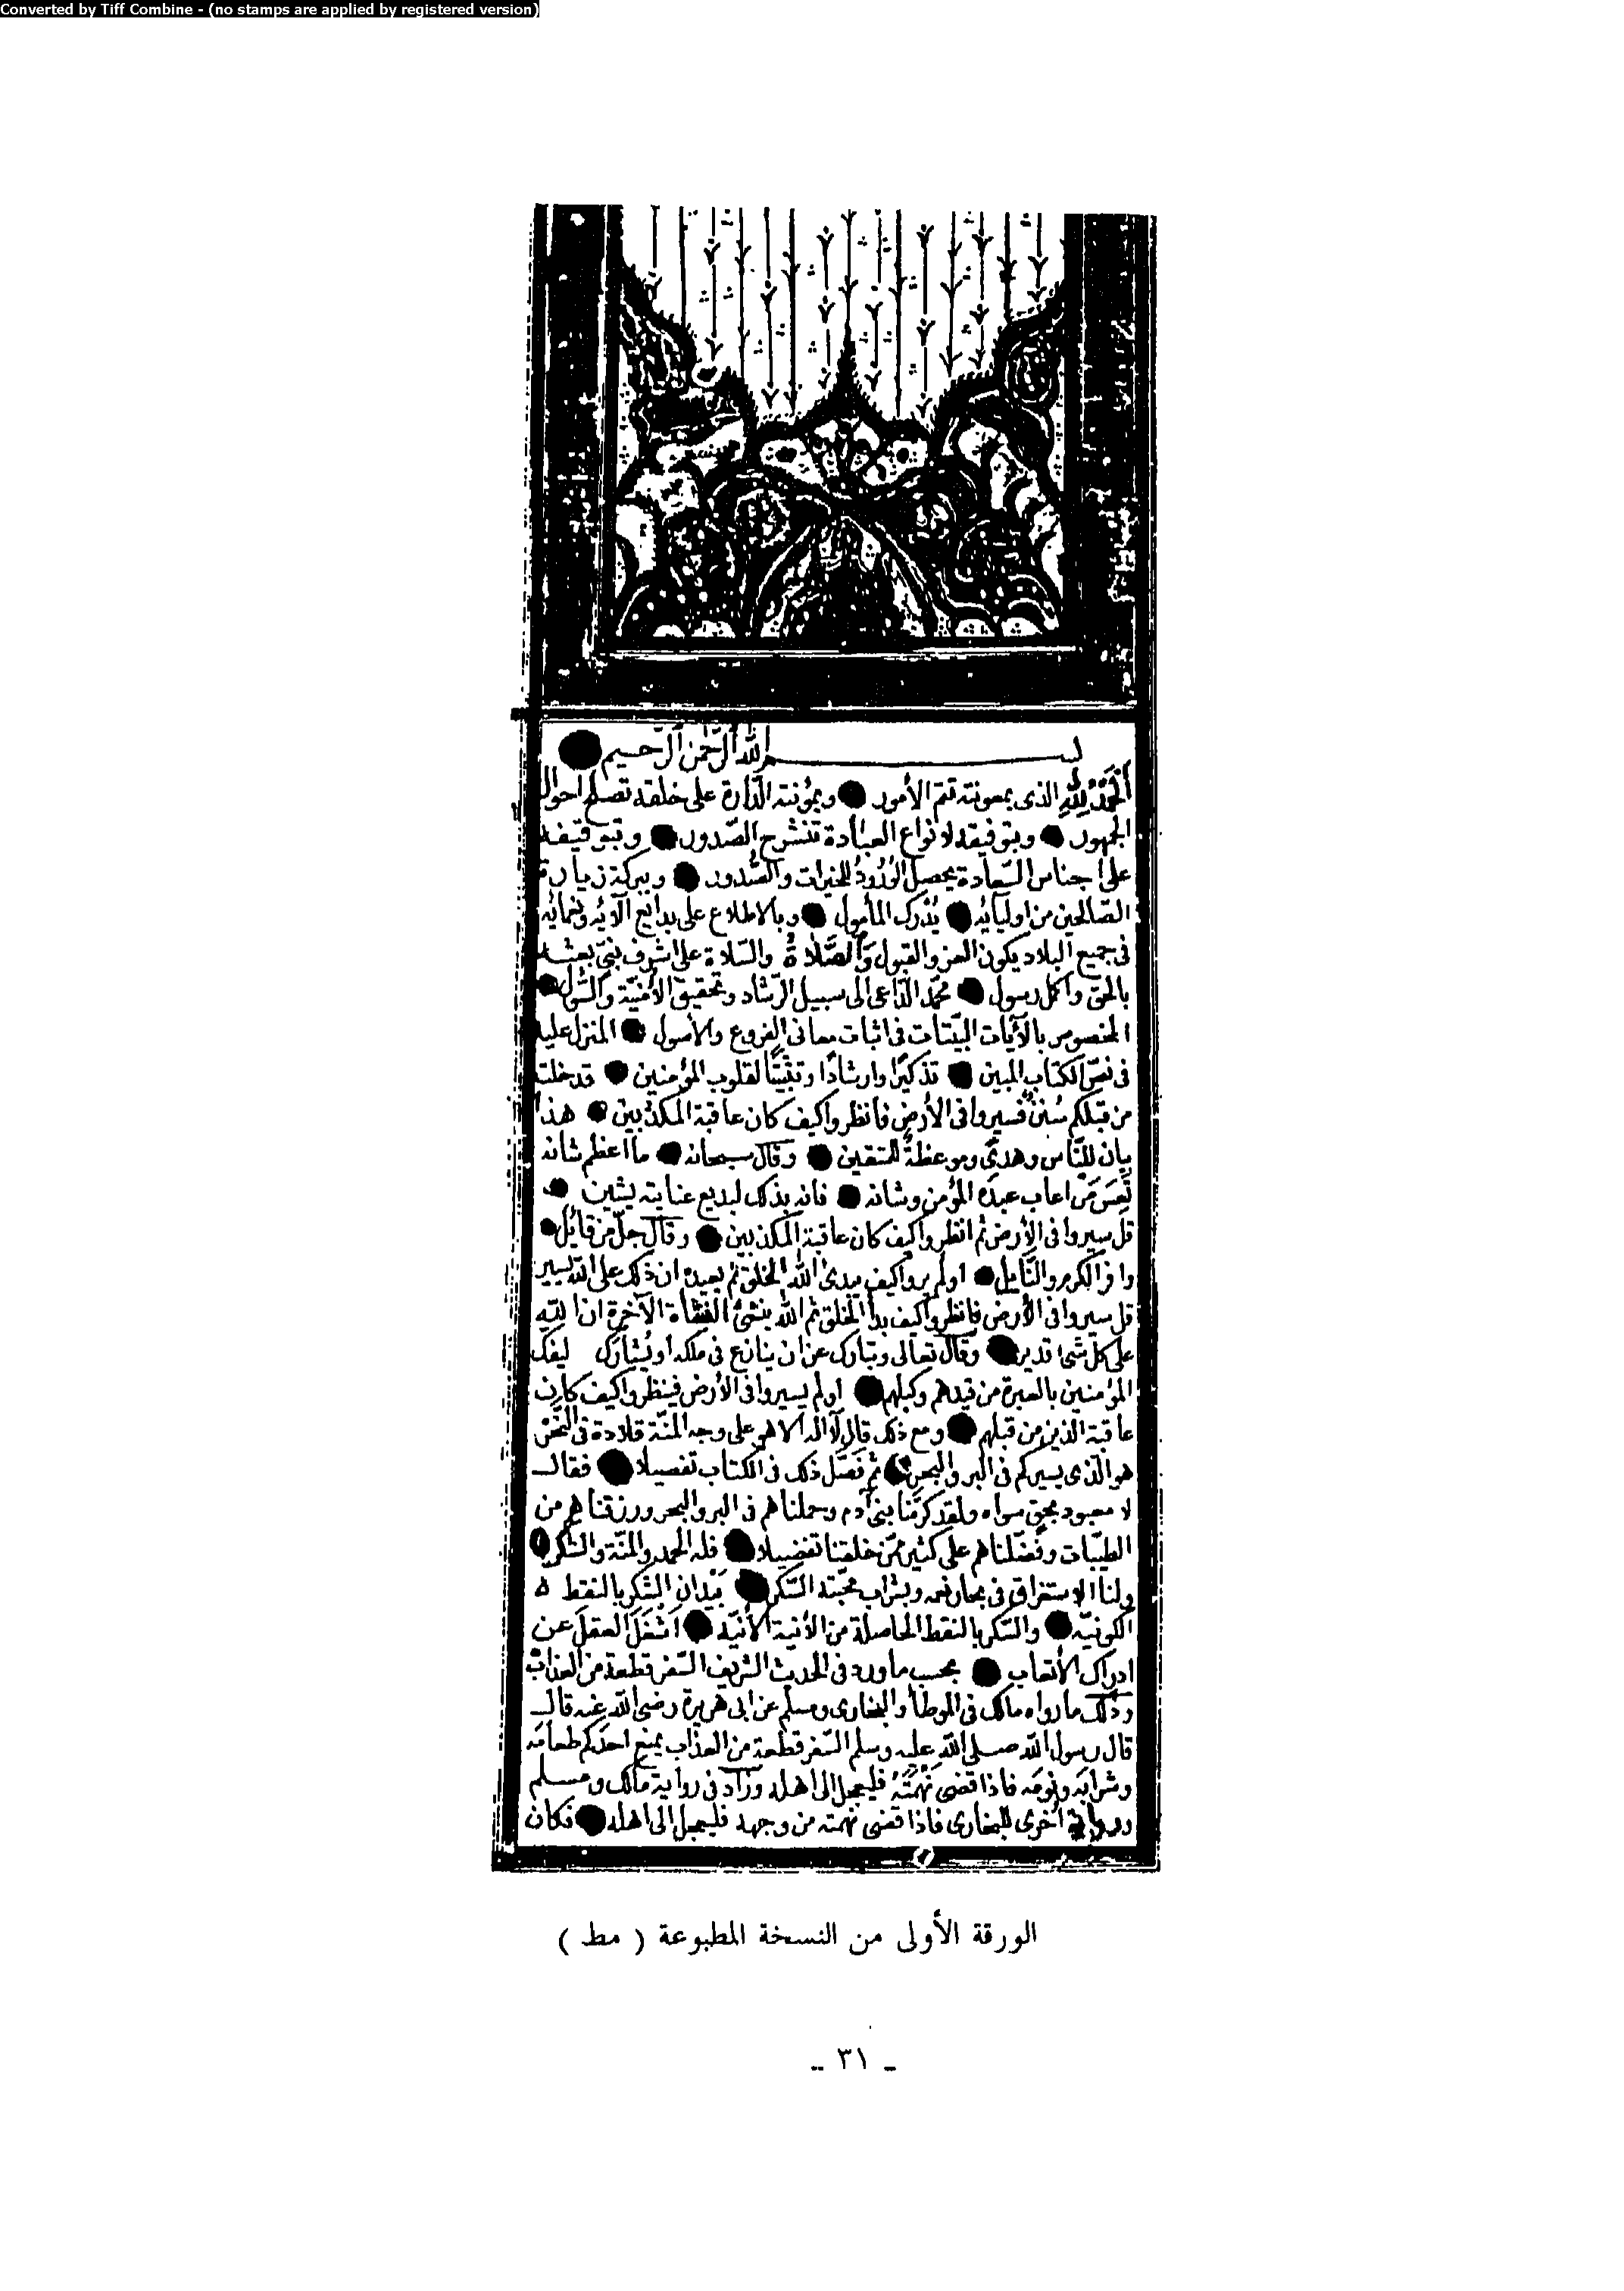 Converted by Tiff Combine - (no stamps are applied by registered version)
بسم الله الرحمن الرحيم
الحمد لله الذى بمعونته تتم الأمور وبمؤنته الدارة على خلقه تصلح احوال
الجمهور وبتوفيقه لانواع العبادة تنشرح الصدور وبتوقيفه
على اجناس السعادة يحصل الورود للخيرات والصدور وببركة زيارة
الصالحين من اوليائه يدرك المأمول وبالاطلاع على بدايع آلائه ونعمائه
فى جميع البلاد يكون العز والقبول والصلاة والسلام على اشرف نبى بعثه
بالحق واكمل رسول محمد الداعى الى سبيل الرشاد وتحقيق الأمنية والسول
المخصوص بالآيات البينات فى اثبات معانى الفروع والأصول المنزل عليه
فى نص الكتاب المبين تذكيرا وارشادا وتثبيتا لقلوب المؤمنين قد خلت
من قبلكم سنن فسيروا فى الأرض فانظروا كيف كان عاقبة المكذبين هذا
بيان للناس وهدى وموعظة للمتقين وقال سبحانه ما اعظم شانه
تعس من اعاب عبده المؤمن وشانه فانه بذلك لبديع عنايته يشين
قل سيروا فى الأرض ثم انظروا كيف كان عاقبة المكذبين وقال جل من قائل
وافر الكرم والنايل اولم يروا كيف يبدئ الله الخلق ثم يعيده ان ذلك على الله يسير
قل سيروا فى الأرض فانظروا كيف بدأ الخلق ثم الله ينشئ النشأة الآخرة ان الله
على كل شئ قدير وقال تعالى وتبارك عن ان ينازع فى ملكه او يشارك ليفك
المؤمنين بالعبرة من قيدهم وكبلهم اولم يسيروا فى الأرض فينظروا كيف كان
عاقبة الذين من قبلهم ومع ذلك قال لا اله الا هو على وجه المنة قلادة فى النحر
هو الذى يسيركم فى البر والبحر ثم فصل ذلك فى الكتاب تفصيلا فقال
لا معبود بحق سواه ولقد كرمنا بنى آدم وحملناهم فى البر والبحر ورزقناهم من
الطيبات وفضلناهم على كثير ممن خلقنا تفضيلا فله الحمد والمنة والشكر
ولنا الاستغراق فى بحار نعمه وبشراب محبته السكر بيد ان الشكر بالنقط
الكونية والسكر بالنقط الحاصلة من الأنية الأنية اشغل العقل عن
ادراك الأتعاب بحسب ما ورد فى الحديث الشريف السفر قطعة من العذاب
وذلك ما رواه مالك فى الموطأ والبخارى ومسلم عن ابى هريرة رضى الله عنه قال
قال رسول الله صلى الله عليه وسلم السفر قطعة من العذاب يمنع احدكم طعامه
وشرابه ونومه فاذا قضى نهمته فليعجل الى اهله وزاد فى رواية مالك ومسلم
ورواية اخرى للبخارى فاذا قضى نهمته من وجهه فليعجل الى اهله فكان
الورقة الأولى من النسخة المطبوعة ( مط )
- ٣١ -